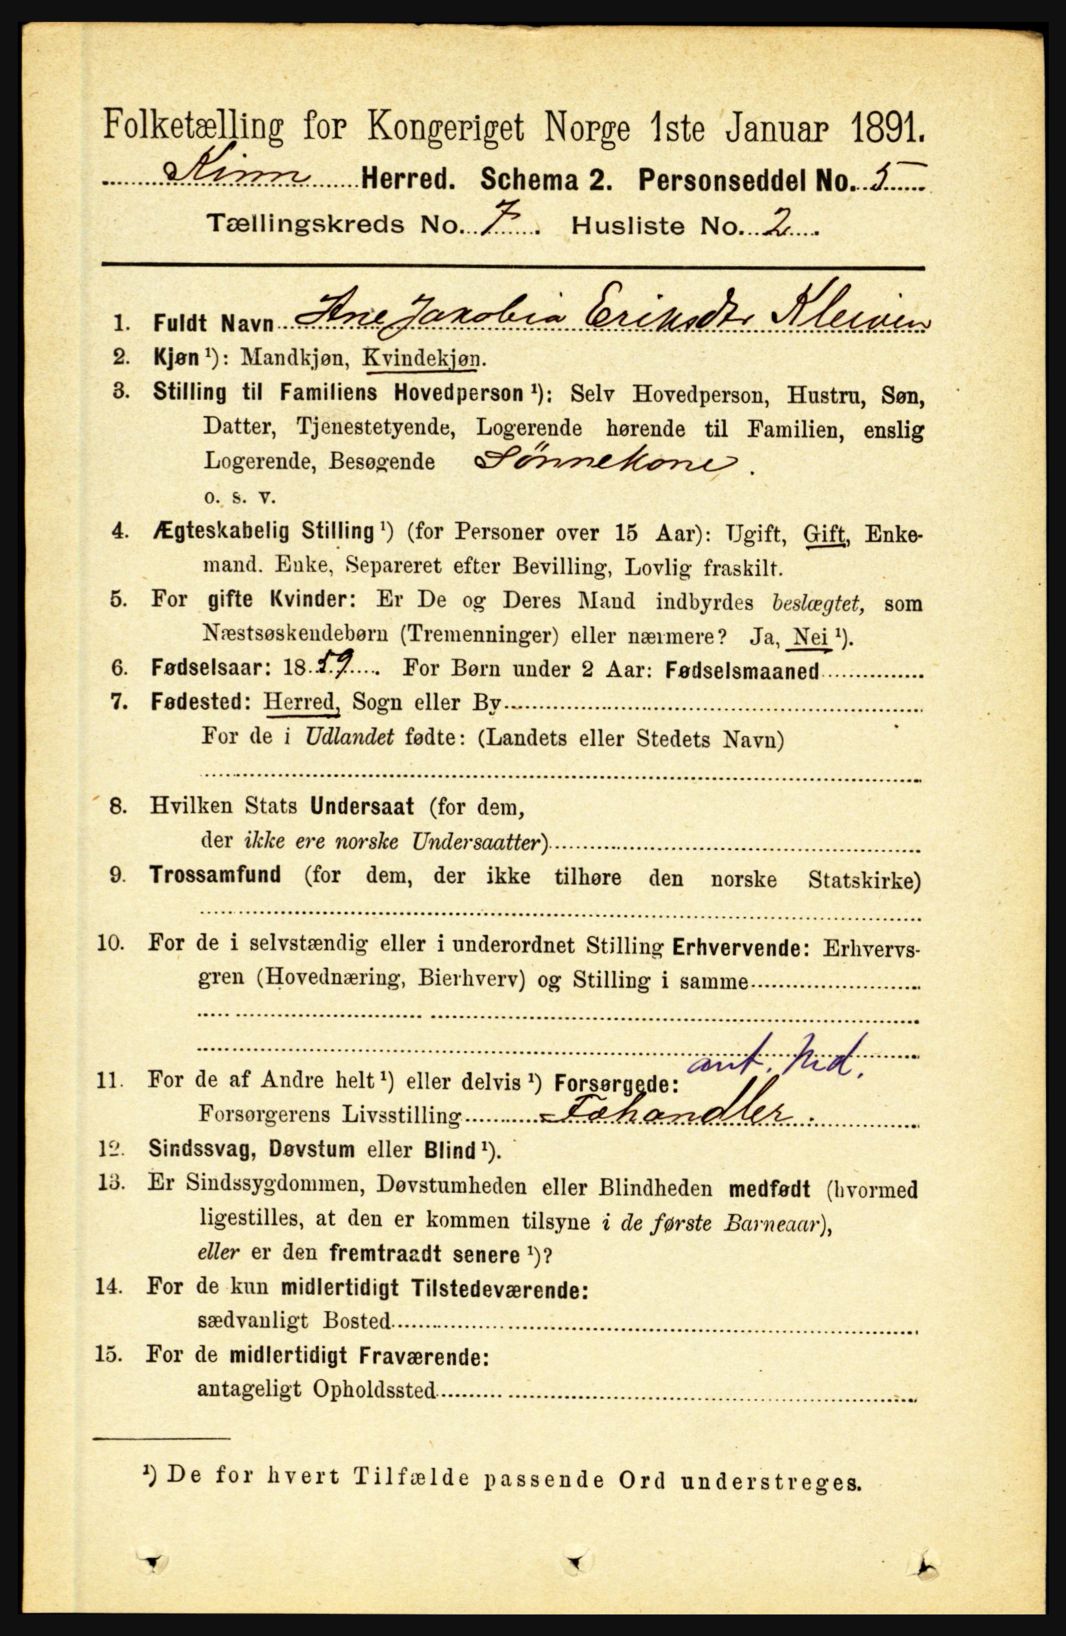 Folketælling for Kongeriget Norge 1ste Januar 1891.
Kinn Herred. Schema 2. Personseddel No. 5
Tællingskreds No. 7. Husliste No. 2.
1. Fuldt Navn Ane Jakobia Eriksdtr Kleiven
2. Kjøn ¹): Mandkjøn, Kvindekjøn.
3. Stilling til Familiens Hovedperson ¹): Selv Hovedperson, Hustru, Søn,
Datter, Tjenestetyende, Logerende hørende til Familien, enslig
Logerende, Besøgende Sønnekone.
o. s. v.
4. Ægteskabelig Stilling ¹) (for Personer over 15 Aar): Ugift, Gift, Enke-
mand. Enke, Separeret efter Bevilling, Lovlig fraskilt.
5. For gifte Kvinder: Er De og Deres Mand indbyrdes beslægtet, som
Næstsøskendebørn (Tremenninger) eller nærmere? Ja, Nei ¹).
6. Fødselsaar: 1859. For Børn under 2 Aar: Fødselsmaaned
7. Fødested: Herred, Sogn eller By
For de i Udlandet fødte: (Landets eller Stedets Navn)
8. Hvilken Stats Undersaat (for dem,
der ikke ere norske Undersaatter)
9. Trossamfund (for dem, der ikke tilhøre den norske Statskirke)
10. For de i selvstændig eller i underordnet Stilling Erhvervende: Erhvervs-
gren (Hovednæring, Bierhverv) og Stilling i samme
ant. hid.
11. For de af Andre helt ¹) eller delvis ¹) Forsørgede:
Forsørgerens Livsstilling Fæhandler.
12. Sindssvag, Døvstum eller Blind ¹).
13. Er Sindssygdommen, Døvstumheden eller Blindheden medfødt (hvormed
ligestilles, at den er kommen tilsyne i de første Barneaar),
eller er den fremtraadt senere ¹)?
14. For de kun midlertidigt Tilstedeværende:
sædvanligt Bosted
15. For de midlertidigt Fraværende:
antageligt Opholdssted
¹) De for hvert Tilfælde passende Ord understreges.